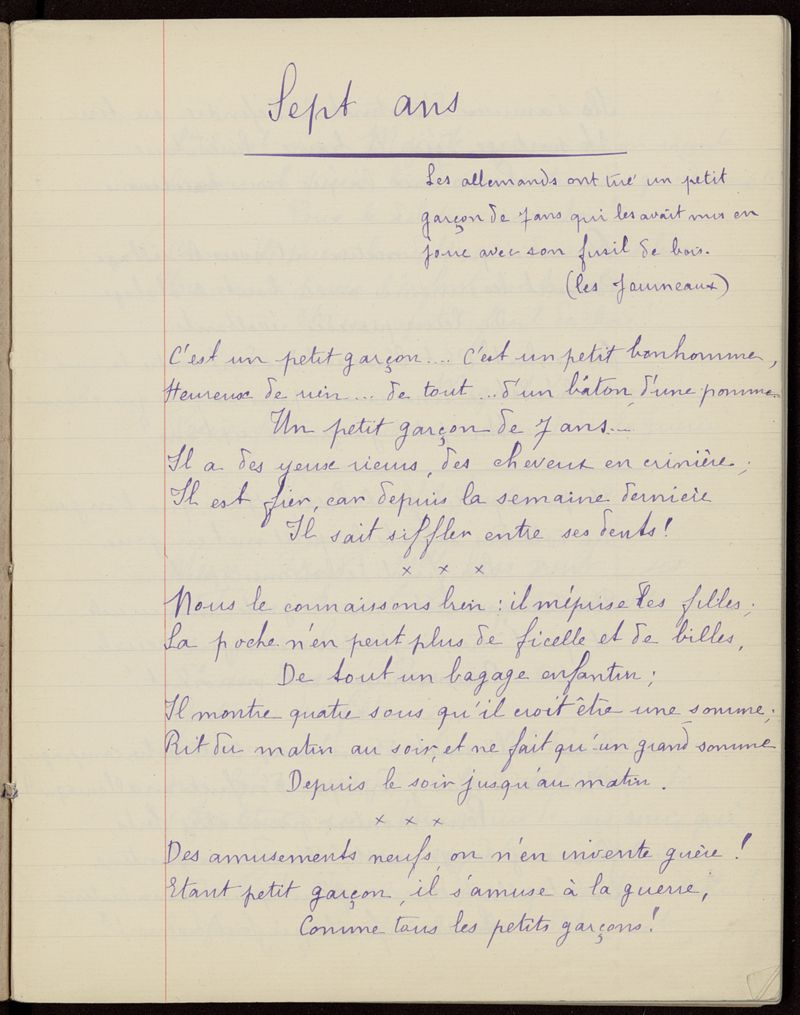 Sept ans
Les allemands ont tué un petit
garçon de 7 ans qui les avait mis en
joue avec son fusil de bois.
(les Journeaux)
C'est un petit garçon.... c'est un petit bonhomme,
Heureux de rien... de tout... d'un bâton, d'une pomme
Un petit garçon de 7 ans...
Il a des yeux rieurs, des cheveux en crinière;
Il est fier, car depuis la semaine dernière
Il sait siffler entre ses dents!
x x x
Nous le connaissons bien: il méprise les filles;
Sa poche n'en peut plus de ficelle et de billes,
De tout un bagage enfantin;
Il montre quatre sous qu'il croit être une somme;
Rit du matin au soir, et ne fait qu'un grand somme
Depuis le soir jusqu'au matin.
x x x
Des amusements neufs, on n'en invente guère!
Etant petit garçon, il s'amuse à la guerre,
Comme tous les petits garçons!